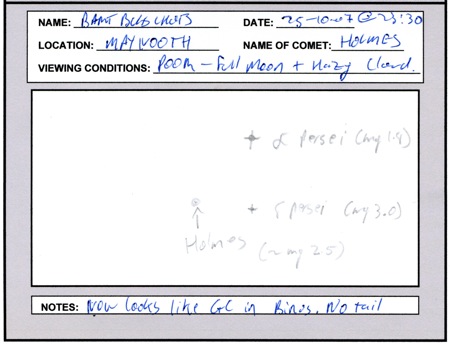 NAME: BART BUSSCHOTS DATE: 25-10-07 @ 23:30
LOCATION: MAYNOOTH NAME OF COMET: HOLMES
VIEWING CONDITIONS: POOR – Full Moon + Hazy Cloud.
α Persei (mag 1.8)
δ Persei (mag 3.0)
Holmes
(~mag 2.5)
NOTES: Now looks like GC in Binos. No tail